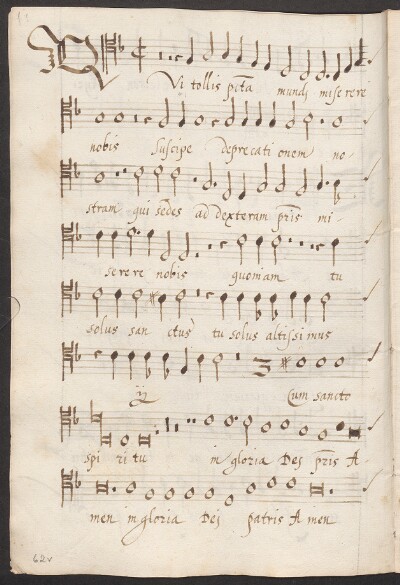 Qui tollis pcta mundi miserere
nobis suscipe deprecationem no-
stram qui sedes ad dexteram pris mi-
serere nobis quoniam tu
solus sanctus tu solus altissimus
ij Cum sancto
spiritu in gloria Dei pris A
men in gloria Dei patris Amen
62v